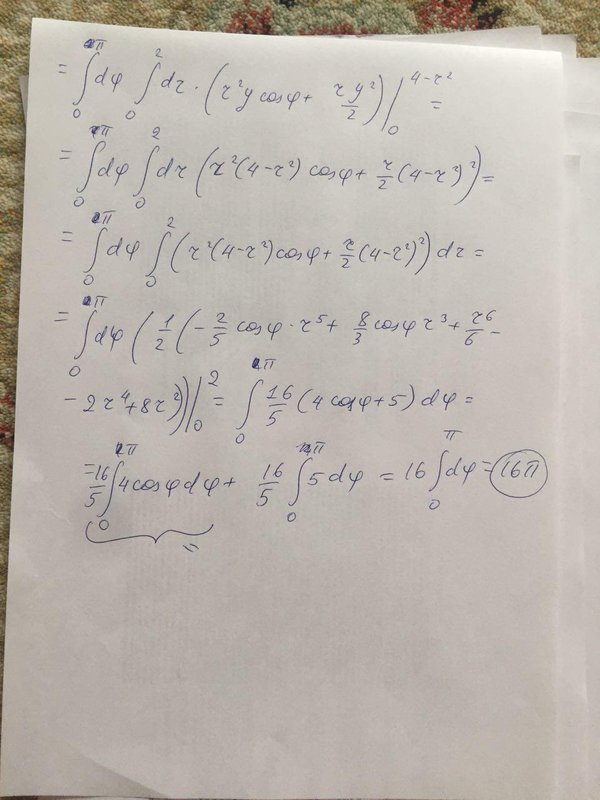 = ∫₀^π dφ ∫₀² dr · (r²y cosφ + ry²/2) |₀^(4−r²) =
= ∫₀^π dφ ∫₀² dr (r²(4−r²) cosφ + r/2 (4−r²)²) =
= ∫₀^π dφ ∫₀² (r²(4−r²)cosφ + r/2 (4−r²)²) dr =
= ∫₀^π dφ (1/2 (−2/5 cosφ · r⁵ + 8/3 cosφ r³ + r⁶/6 −
− 2r⁴ + 8r²)) |₀² = ∫₀^π 16/5 (4cosφ + 5) dφ =
= 16/5 ∫₀^π 4cosφ dφ + 16/5 ∫₀^π 5dφ = 16 ∫₀^π dφ = 16π
=